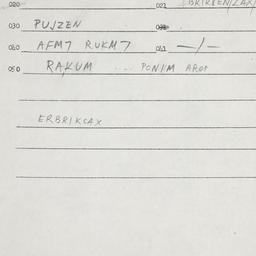 020 021 BRIKCENZLAX
030 PUJZEN
060 AFM7 RUKM7 061 -/-
050 RAKUM .... PONIM AROP
ERBRIKCAX